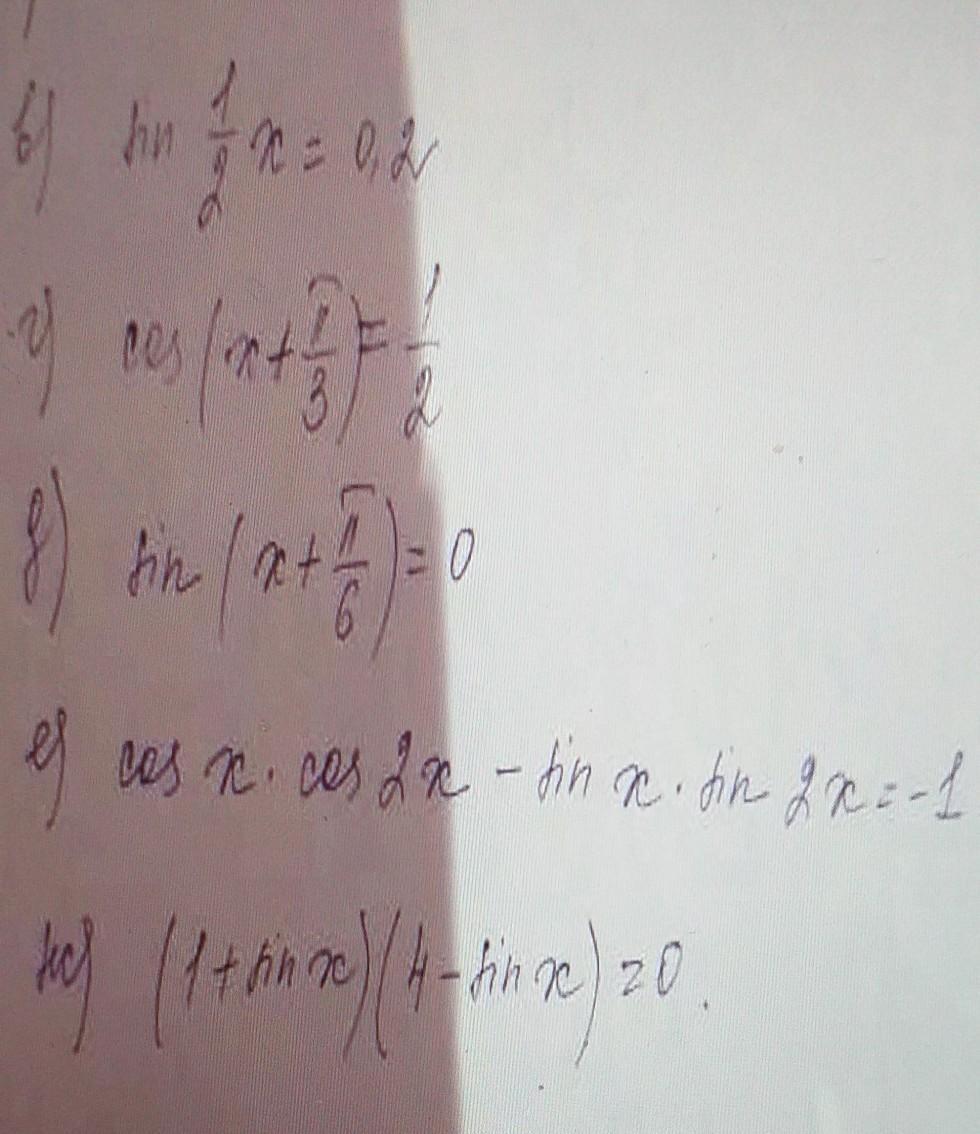 в) sin 1/2 x = 0,2
г) cos (x + π/3) = 1/2
д) sin (x + π/6) = 0
е) cos x · cos 2x - sin x · sin 2x = -1
ж) (1 + sin x)(4 - sin x) = 0.